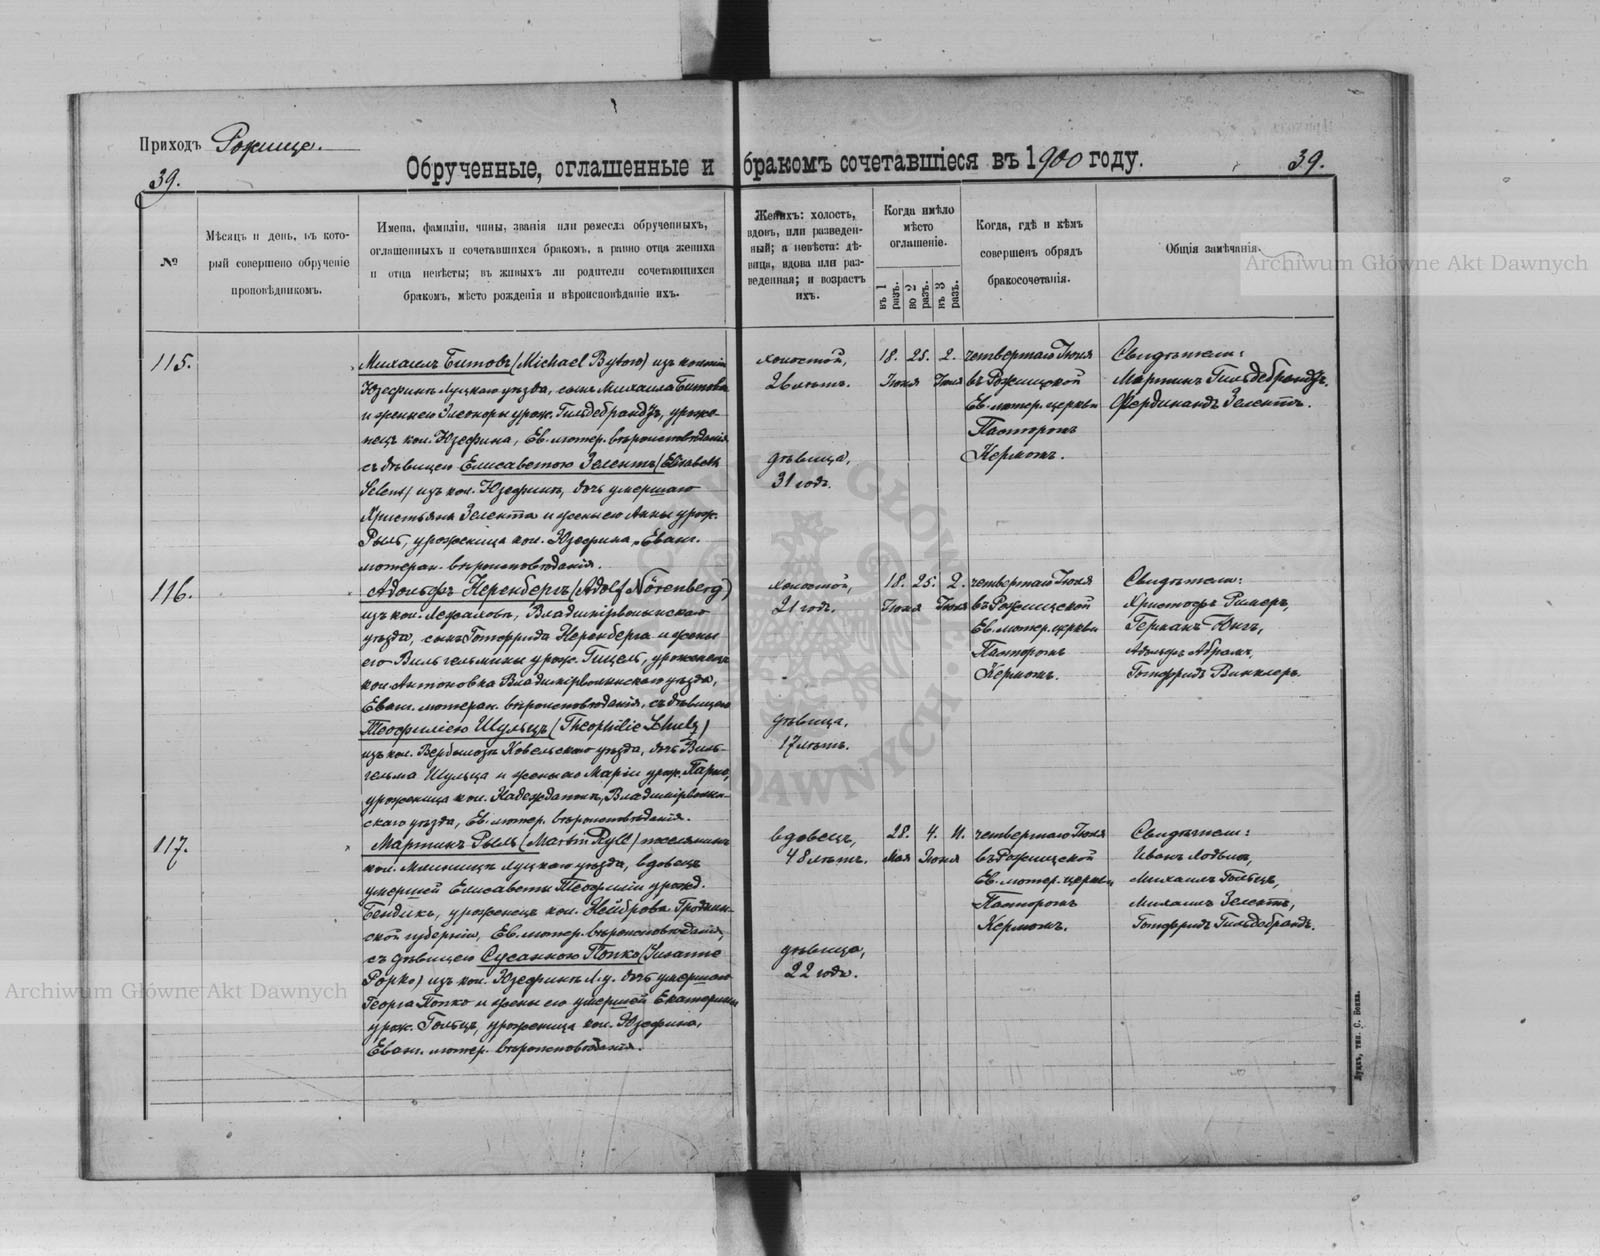 Приходъ Рожище.
39.
Обрученные, оглашенные и бракомъ сочетавшіеся въ 1900 году.
39.
№
Мѣсяцъ и день, въ кото-
рый совершено обрученіе
проповѣдникомъ.
Имена, фамиліи, чины, званія или ремесла обрученныхъ,
оглашенныхъ и сочетавшихся бракомъ, а равно отца жениха
и отца невѣсты; въ живыхъ ли родители сочетающихся
бракомъ, мѣсто рожденія и вѣроисповѣданіе ихъ.
Женихъ: холостъ,
вдовъ, или разведен-
ный; а невѣста: дѣ-
вица, вдова или раз-
веденная; и возрастъ
ихъ.
Когда имѣло
мѣсто
оглашеніе.
въ 1 разъ.
во 2 разъ.
въ 3 разъ.
Когда, гдѣ и кѣмъ
совершенъ обрядъ
бракосочетанія.
Общія замѣчанія.
Archiwum Główne Akt Dawnych
115.
Михаилъ Битовъ (Michael Bytow) изъ колоніи
Юзефинъ Луцкаго уѣзда, сынъ Михаила Битова
и жены его Элеоноры урож. Гильдебрандъ, уроже-
нецъ кол. Юзефина, Ев. лютер. вѣроисповѣданія
съ дѣвицею Елисаветою Зелентъ (Elisabeth
Selent) изъ кол. Юзефинъ, дочь умершаго
Христьяна Зелента и жены его Анны урож.
Рыль, уроженица кол. Юзефина, Еванг.
лютеран. вѣроисповѣданія.
холостой,
26 лѣтъ.
дѣвица,
31 годъ.
18. 25. 2.
Іюня Іюля
четвертаго Іюля
въ Рожищской
Ев. лютер. церкви
Пасторомъ
Кермомъ.
Свидѣтели:
Мартинъ Гильдебрандъ.
Фердинандъ Зелентъ.
116.
Адольфъ Неренбергъ (Adolf Nörenberg)
изъ кол. Владимірволынскаго
уѣзда, сынъ Готфрида Неренберга и жены
его Вильгельмины урож. Гицель, уроженецъ
кол. Антоновка Владимірволынскаго уѣзда,
Еванг. лютеран. вѣроисповѣданія, съ дѣвицею
Теофиліею Шульцъ (Theophilie Schulz)
изъ кол. Вербполозъ Ковельскаго уѣзда, дочь Виль-
гельма Шульца и жены его Маріи урож.
уроженица кол. Владимірволын-
скаго уѣзда, Ев. лютер. вѣроисповѣданія.
холостой,
21 годъ.
дѣвица,
17 лѣтъ.
18. 25. 2.
Іюня Іюля
четвертаго Іюля
въ Рожищской
Ев. лютер. церкви
Пасторомъ
Кермомъ.
Свидѣтели:
Христофъ Ример,
Германъ Юнгъ,
Адольфъ Абрамъ,
Готфридъ Винклеръ.
117.
Мартинъ Рыль (Martin Ryll) поселянинъ
кол. Луцкаго уѣзда, вдовецъ
умершей Елисаветы Теофиліи урожд.
Бендикъ, уроженецъ кол. Нейброва Гроднен-
ской губерніи, Ев. лютер. вѣроисповѣданія,
съ дѣвицею Сусанною Попко (Susanne
Popko) изъ кол. Юзефинъ Л. у. дочь умершаго
Георга Попко и жены его умершей Екатерины
урож. Гольцъ, уроженица кол. Юзефина,
Еванг. лютер. вѣроисповѣданія.
вдовецъ,
48 лѣтъ.
дѣвица,
22 года.
28. 4. 11.
Мая Іюня
четвертаго Іюля
въ Рожищской
Ев. лютер. церкви
Пасторомъ
Кермомъ.
Свидѣтели:
Иванъ
Михаилъ Гольцъ,
Михаилъ Зелентъ,
Готфридъ Гильдебрандъ.
Archiwum Główne Akt Dawnych
Луцкъ, тип. С. Бокка.